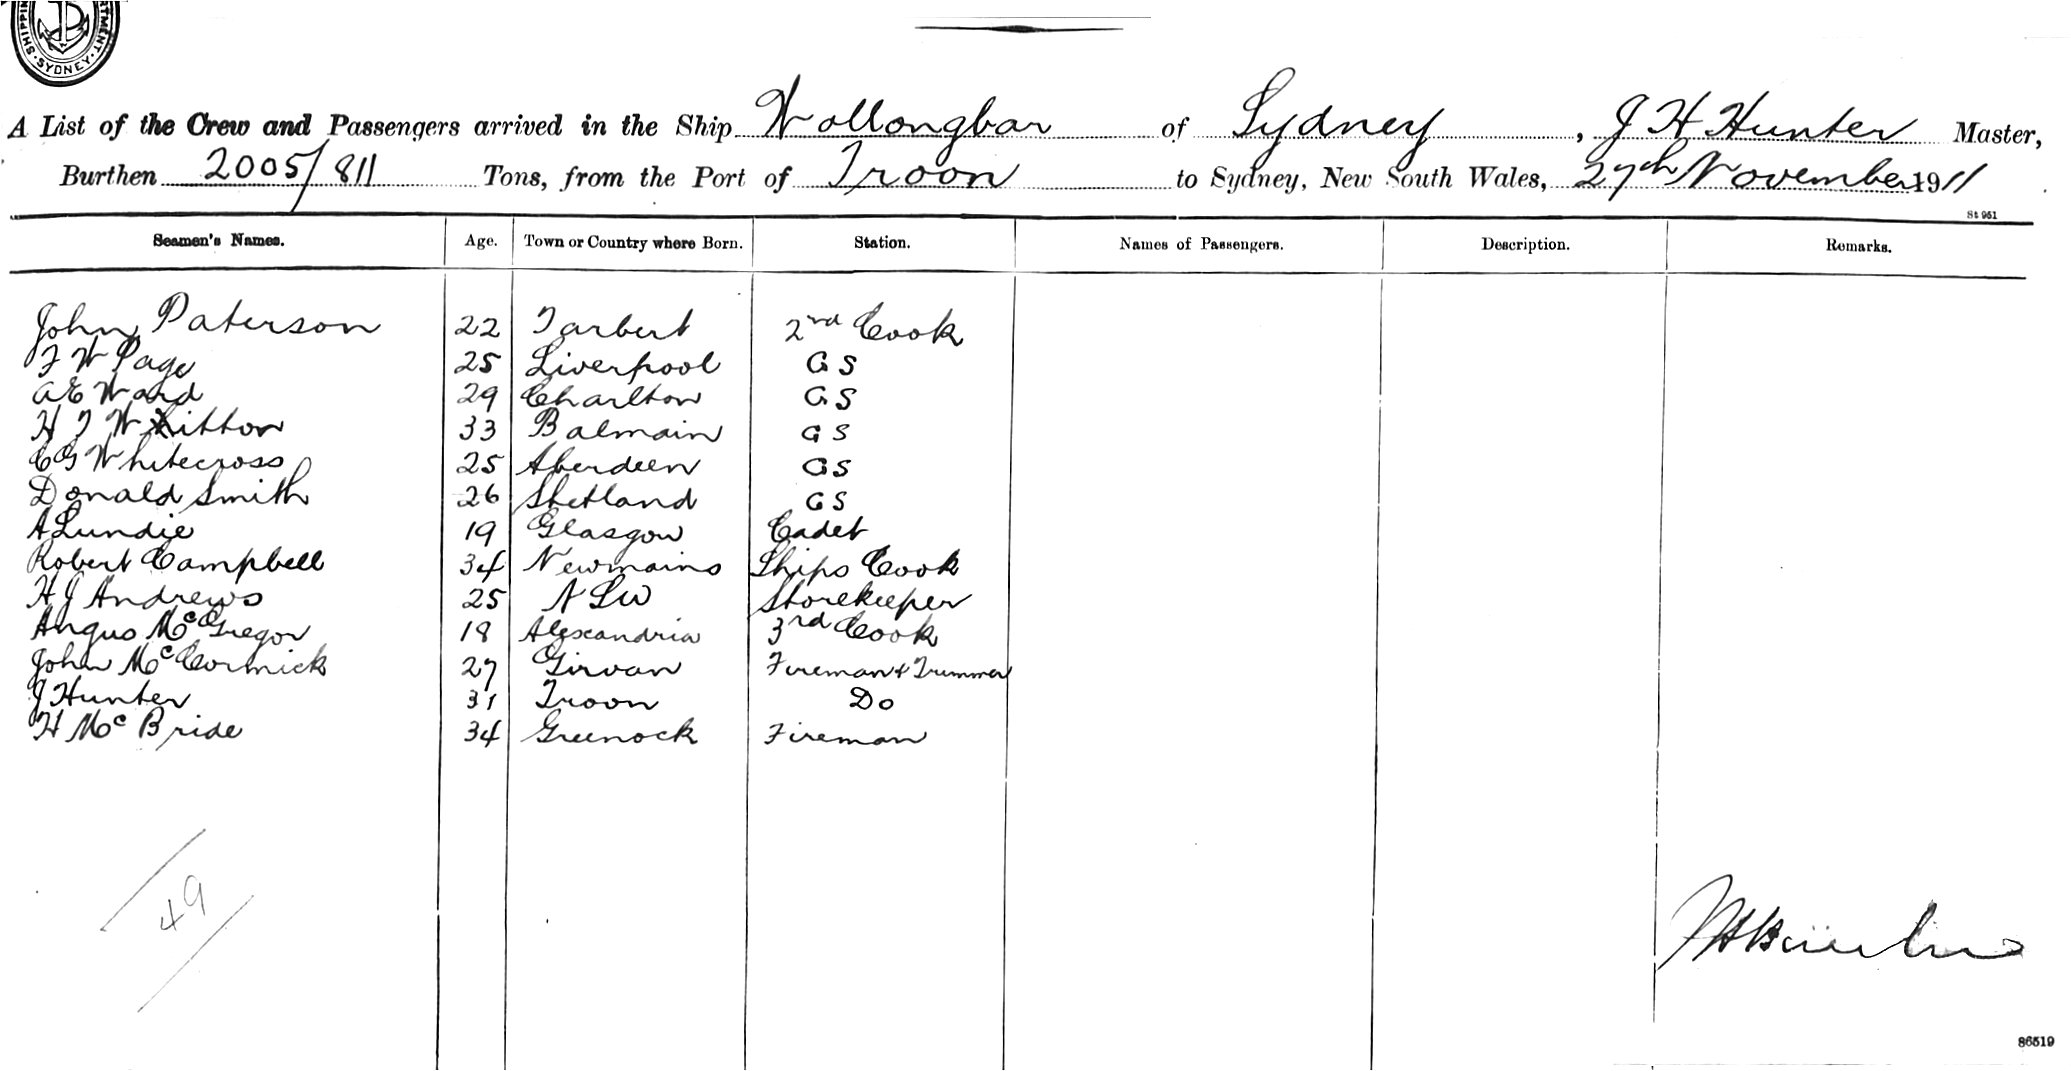 SHIPPIN RTMENT. SYDNEY
A List of the Crew and Passengers arrived in the Ship Wollongbar of Sydney, J H Hunter Master,
Burthen 2005/811 Tons, from the Port of Troon to Sydney, New South Wales, 27th November 1911
St 951
Seamen's Names. Age. Town or Country where Born. Station. Names of Passengers. Description. Remarks.
John Paterson 22 Tarbert 2nd Cook
F W Page 25 Liverpool GS
A E Ward 29 Charlton GS
H T Whitton 33 Balmain GS
C G Whitecross 25 Aberdeen GS
Donald Smith 26 Shetland GS
A Lundie 19 Glasgow Cadet
Robert Campbell 34 Newmains Ships Cook
H J Andrews 25 N S W Storekeeper
Angus McGregor 18 Alexandria 3rd Cook
John McCormick 27 Girvan Fireman & Trimmer
J Hunter 31 Troon Do
H McBride 34 Greenock Fireman
49
86519